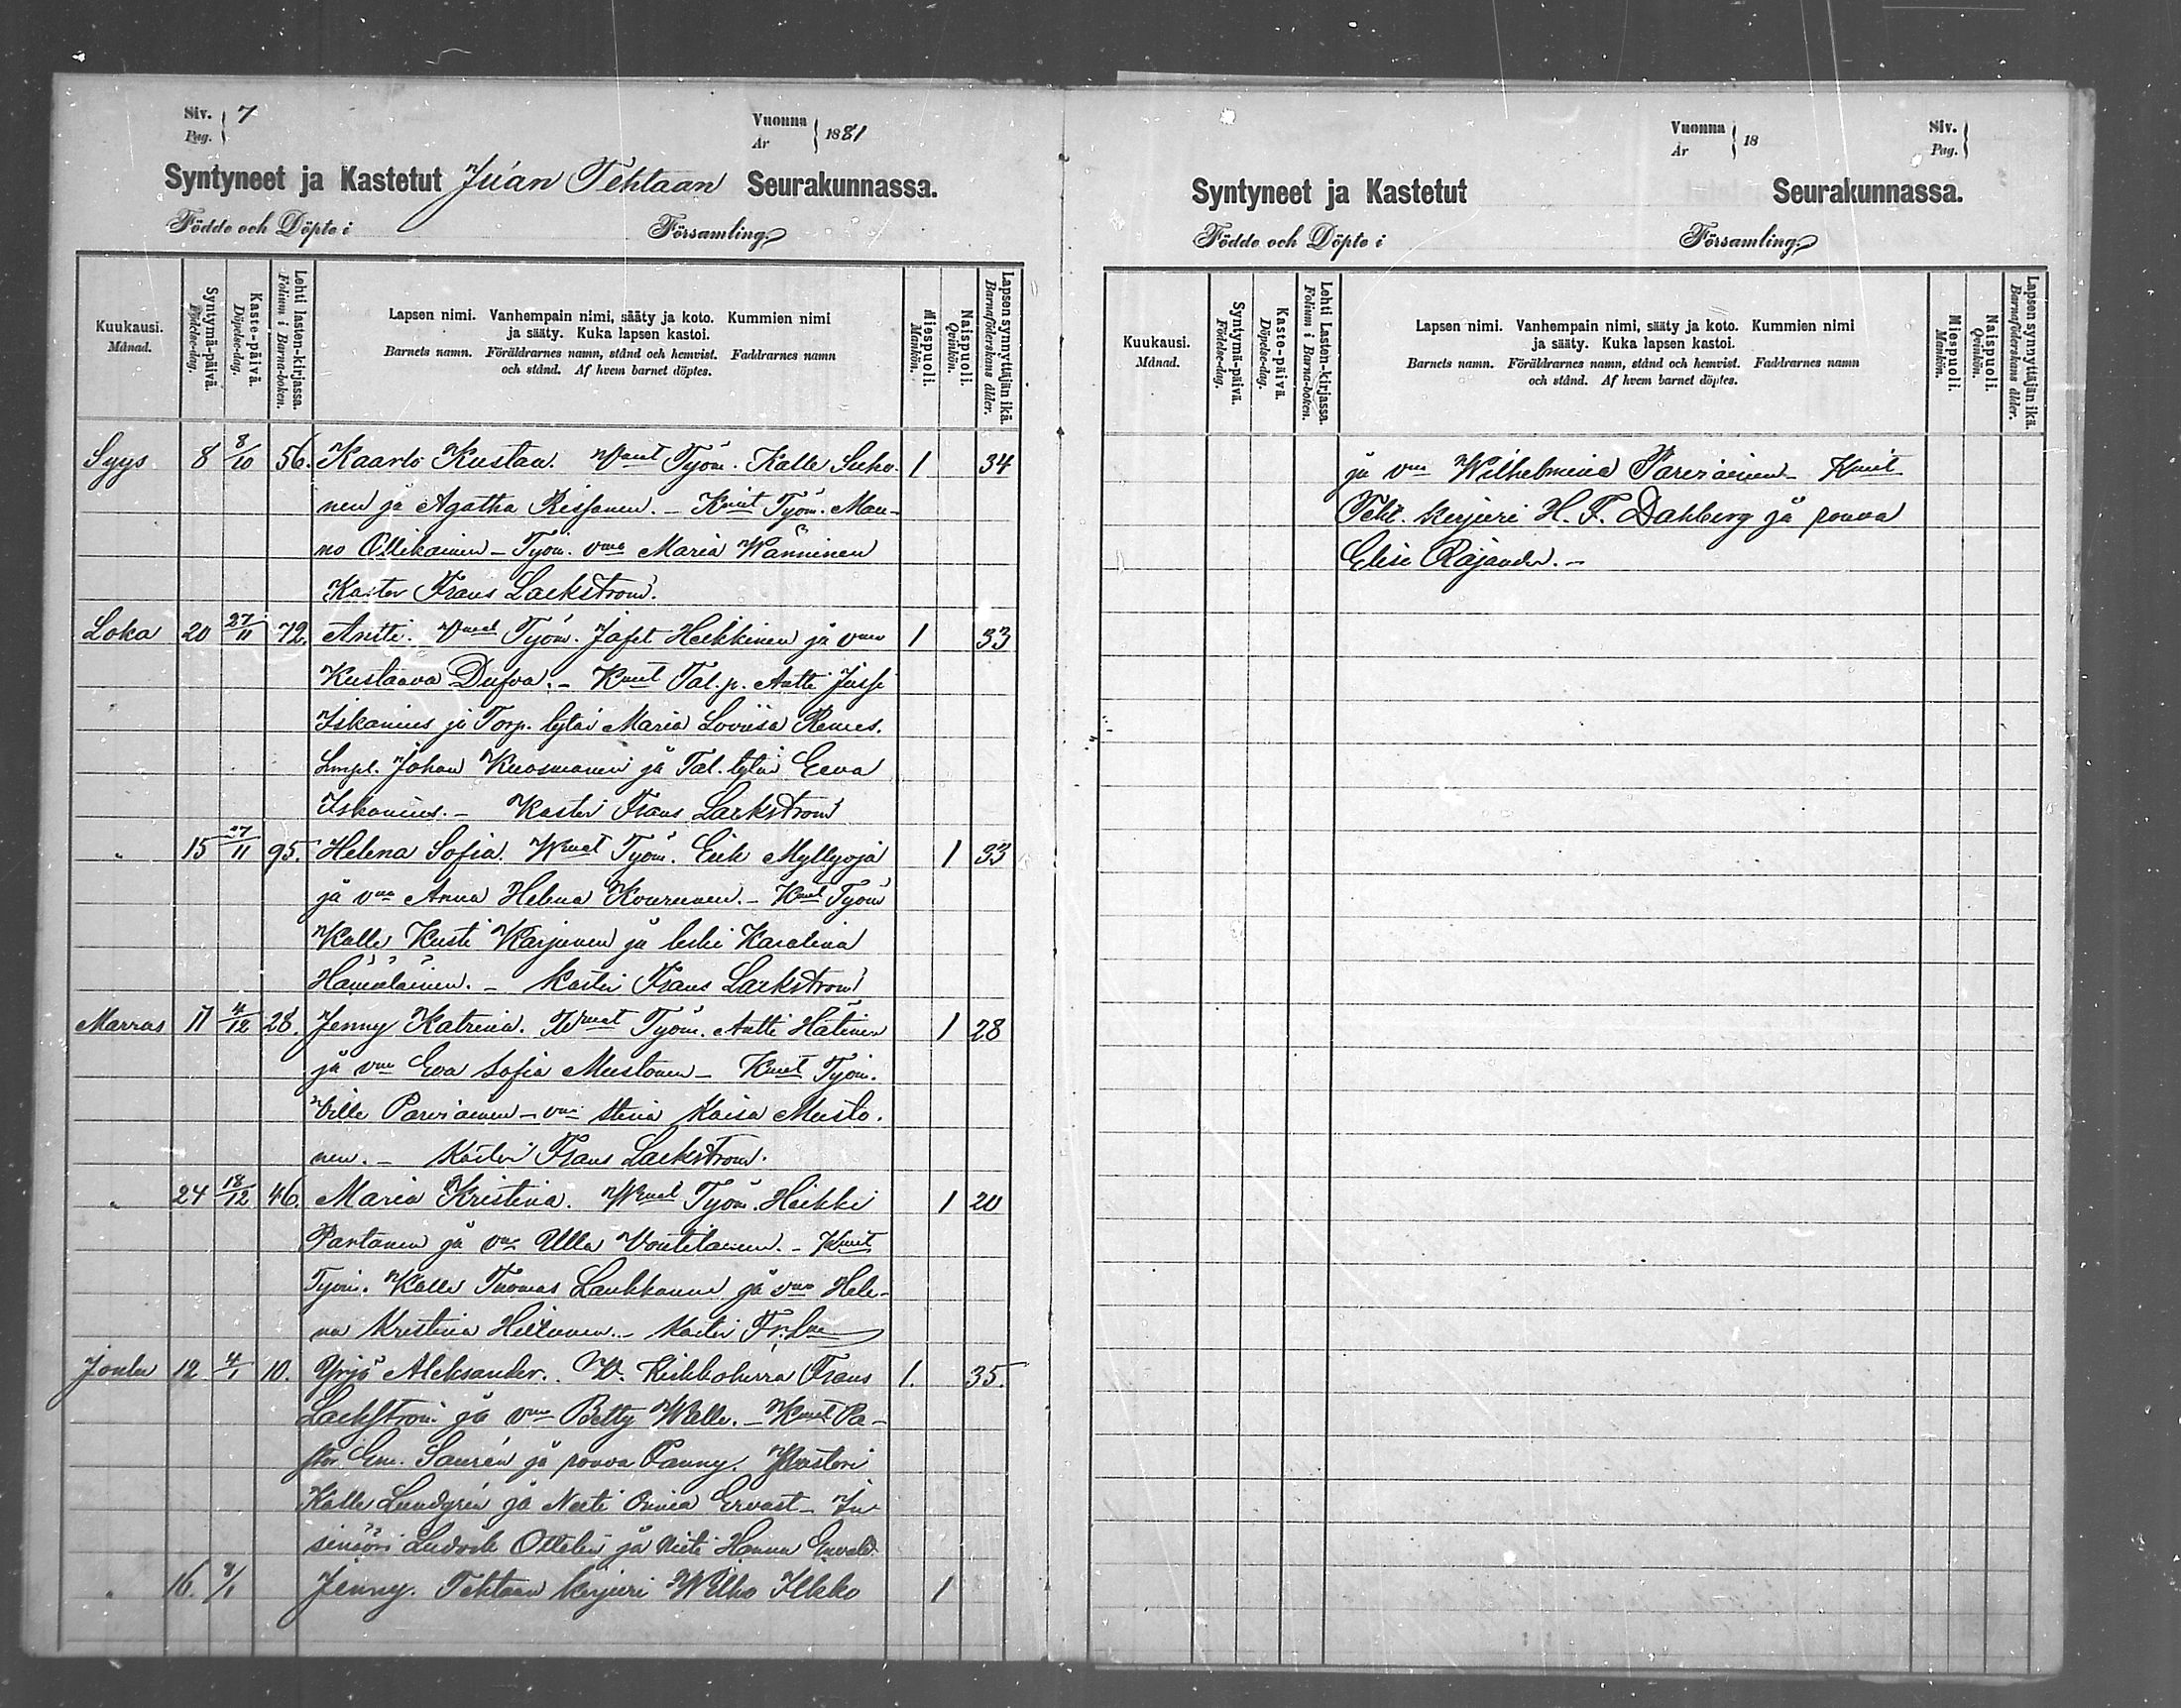 Siv. 7
Pag.
Vuonna
År 1881
Syntyneet ja Kastetut Juan Tehtaan Seurakunnassa.
Födde och Döpte i Församling
Kuukausi.
Månad.
Syntymä-päivä.
Födelse-dag.
Kaste-päivä.
Döpelse-dag.
Lehti lasten-kirjassa.
Folium i Barna-boken.
Lapsen nimi. Vanhempain nimi, sääty ja koto. Kummien nimi
ja sääty. Kuka lapsen kastoi.
Barnets namn. Föräldrarnes namn, stånd och hemvist. Faddrarnes namn
och stånd. Af hvem barnet döptes.
Miespuoli.
Mankön.
Naispuoli.
Qvinkön.
Lapsen synnyttäjän ikä.
Barnaföderskans ålder.
Syys 8 8/10 56. Kaarlo Kustaa. Vmat Työm. Kalle Suho- 1 34
nen ja Agatha Rissanen. - Kmit Työm. Mau-
no Ollikainen - Työm. vmo Maria Wänninen
Kastoi Frans Lackström.
Loka 20 27/11 72. Antti. Vmat Työm. Jafet Heikkinen ja vmo 1 33
Kustaava Dufva. - Kmit Tal. p. Antti Jussi
Iskanius ja Torp. tytär Maria Loviisa Remes.
Lmpl. Johan Kuosmanen ja Tal. tytär Eeva
Iskanius. - Kastoi Frans Lackström
" 15 27/11 95. Helena Sofia. Wmat Työm. Erik Myllyoja 1 33
ja vmo Anna Helena Kourunen. - Kmit Työm
Kalle Kusti Karjunen ja leski Karolina
Hämäläinen. - Kastoi Frans Lackström
Marras 11 4/12 28. Jenny Katrina. Wmat Työm. Antti Hätinen 1 28
ja vmo Eva Sofia Mustonen - Kmit Työm.
Ville Parviainen - vmo Stina Kaisa Musto-
nen. - Kastoi Frans Lackström.
" 24 18/12 46. Maria Kristina. Wmat Työm. Heikki 1 20
Partanen ja vmo Ulla Voutilainen. - Kmit
Työm. Kalle Thomas Laukkanen ja vmo Hele-
na Kristina Hiltunen. - Kastoi Fr. Lm
Joulu 12 4/1 10. Yrjö Aleksander. W. Kirkkoherra Frans 1. 35.
Lackström ja vmo Betty Walle. - Kmit Pa-
stor Em. Saurén ja rouva Fanny. Kanttori
Kalle Lundgrén ja Neiti Onnea Ervast - In-
sinööri Ludvik Ottelin ja Neiti Hanna Envald.
" 16. 8/1 Jenny. Tehtaan kirjuri Wilho Ilkko 1
Vuonna
År 18
Siv.
Pag.
Syntyneet ja Kastetut Seurakunnassa.
Födde och Döpte i Församling
Kuukausi.
Månad.
Syntymä-päivä.
Födelse-dag.
Kaste-päivä.
Döpelse-dag.
Lehti Lasten-kirjassa.
Folium i Barna-boken.
Lapsen nimi. Vanhempain nimi, sääty ja koto. Kummien nimi
ja sääty. Kuka lapsen kastoi.
Barnets namn. Föräldrarnes namn, stånd och hemvist. Faddrarnes namn
och stånd. Af hvem barnet döptes.
Miespuoli.
Mankön.
Naispuoli.
Qvinkön.
Lapsen synnyttäjän ikä.
Barnaföderskans ålder.
ja vmo Wilhelmina Parviainen - Kmit
Teht. kirjuri H. F. Dahlberg ja rouva
Elise Rajander. -